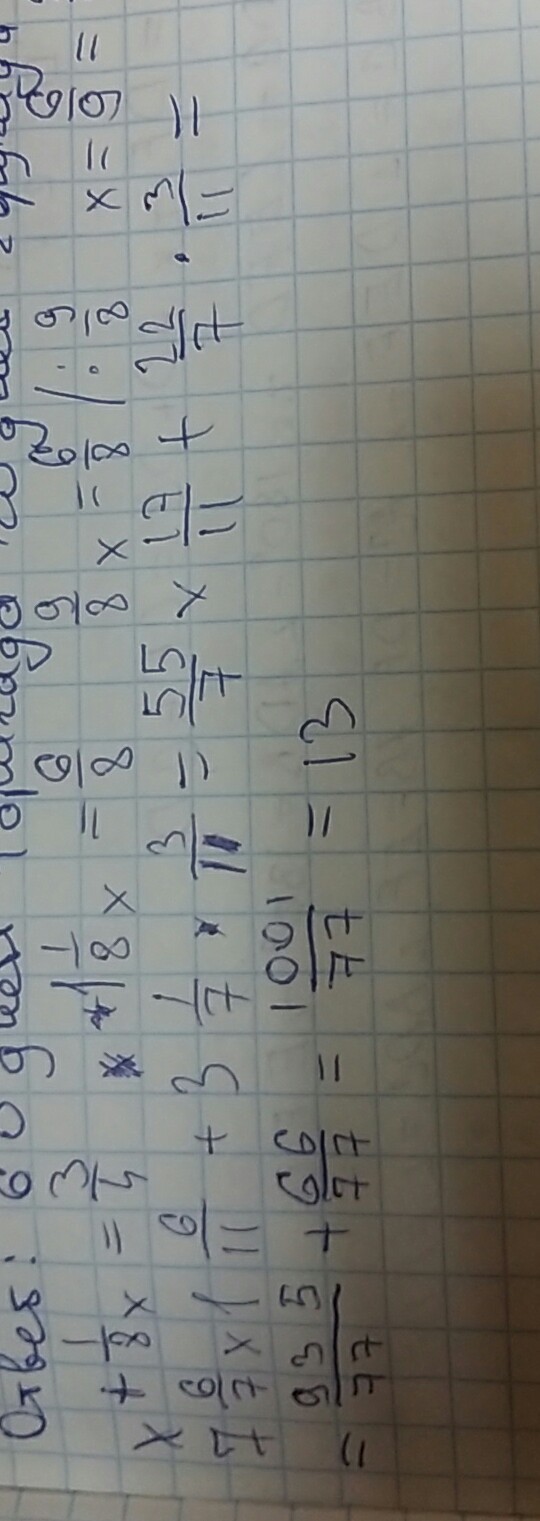 Ответ: 60 дней
x + 1/8 x = 3/4 1 1/8 x = 6/8 9/8 x = 6/8 / : 9/8 x = 6/9 =
7 6/7 × 1 6/11 + 3 1/7 · 3/11 = 55/7 × 17/11 + 22/7 · 3/11 =
= 935/77 + 66/77 = 1001/77 = 13